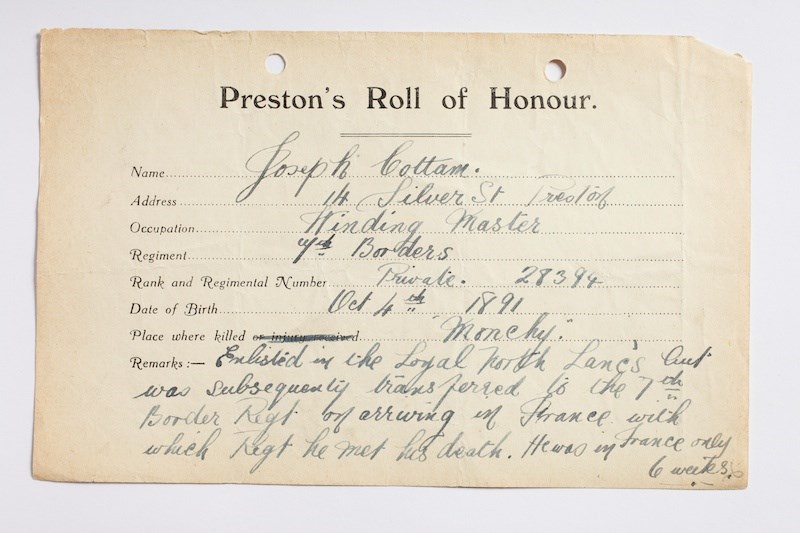 Preston's Roll of Honour.
Name Joseph Cottam.
Address 14 Silver St Preston
Occupation Winding Master
Regiment 7th Borders
Rank and Regimental Number Private. 28394
Date of Birth Oct 4th 1891
Place where killed or injury received. "Monchy".
Remarks:— Enlisted in the Loyal North Lanc's but
was subsequently transferred to the 7th
Border Regt on arriving in France with
which Regt he met his death. He was in France only
6 weeks.